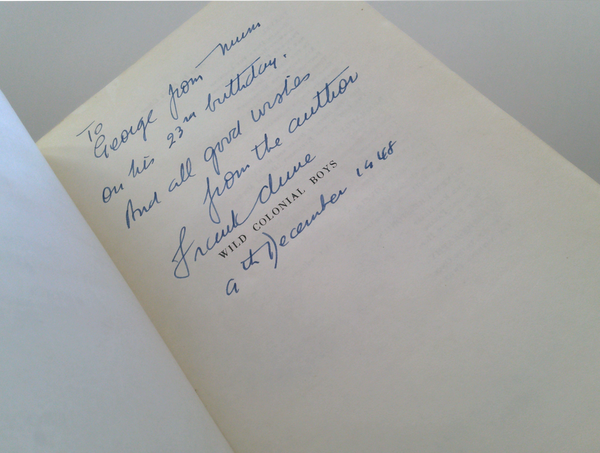 To
George from Mum
on his 23rd birthday.
And all good wishes
from the author
Frank Clune
WILD COLONIAL BOYS
9th December 1948